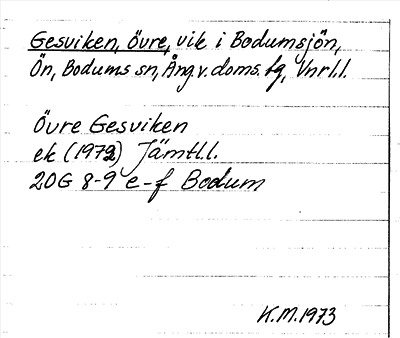 Gesviken, Övre, vik i Bodumsjön,
Ön, Bodums sn, Ång.v. doms. fg, Vnrl.l.
Övre Gesviken
ek (1972) Jämtl.l.
20G 8-9 e-f Bodum
K.M. 1973